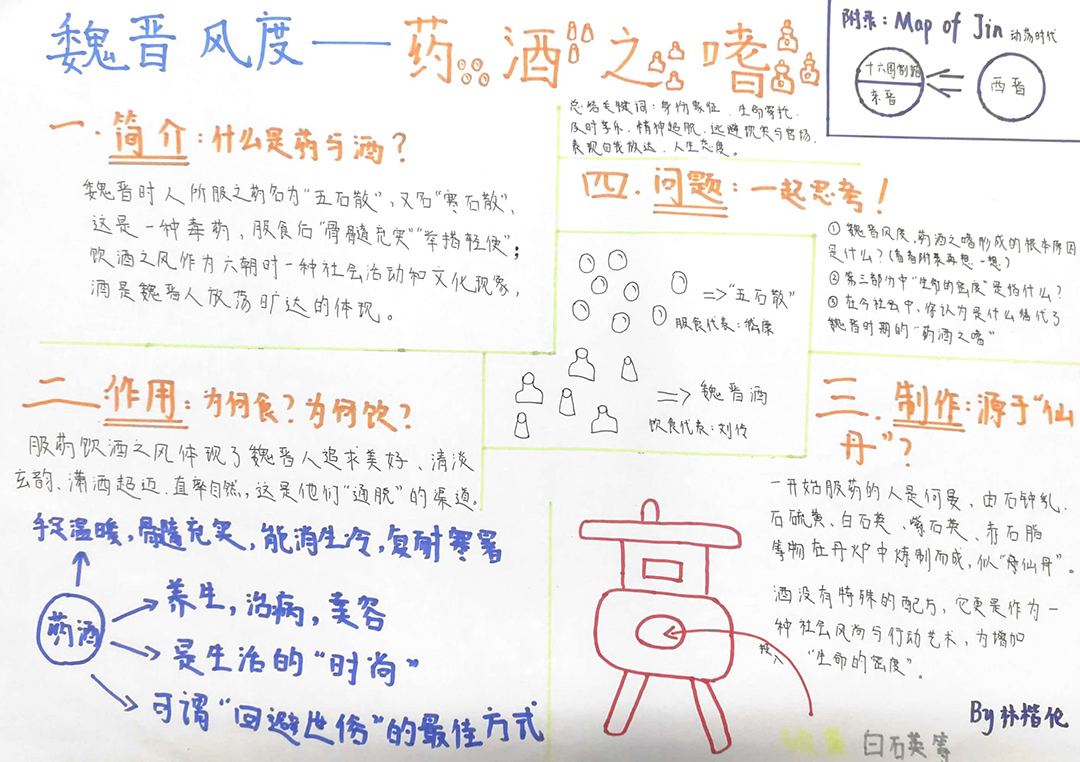 魏晋风度——药酒之嗜
附录：Map of Jin 动荡时代
十六国割据
东晋
西晋
总结关键词：身份象征、生命寄托、
及时享乐、精神超脱、逃避现实与官场、
表现自我放达、人生态度。
一. 简介：什么是药与酒？
魏晋时人所服之药名为“五石散”，又名“寒石散”，
这是一种毒药，服食后“骨髓充实”“举措轻便”；
饮酒之风作为六朝时一种社会活动和文化现象，
酒是魏晋人放荡旷达的体现。
四. 问题：一起思考！
① 魏晋风度、药酒之嗜形成的根本原因
是什么？（看看附录再想一想）
② 第三部分中“生命的密度”是指什么？
③ 在今社会中，你认为是什么替代了
魏晋时期的“药酒之嗜”
=>“五石散”
服食代表：嵇康
=> 魏晋酒
饮食代表：刘伶
二 作用：为何食？为何饮？
服药饮酒之风体现了魏晋人追求美好、清淡
玄韵、潇洒超迈、直率自然，这是他们“通脱”的渠道。
手足温暖，骨髓充实，能消生冷，复耐寒暑
药酒
养生，治病，美容
是生活的“时尚”
可谓“回避世俗”的最佳方式
三. 制作：源于“仙
丹”？
一开始服药的人是何晏，由石钟乳、
石硫黄、白石英、紫石英、赤石脂
等物在丹炉中炼制而成，似“母仙丹”。
酒没有特殊的配方，它更是作为一
种社会风尚与行动艺术，为增加
“生命的密度”。
投入
白石英等
By 林楷伦